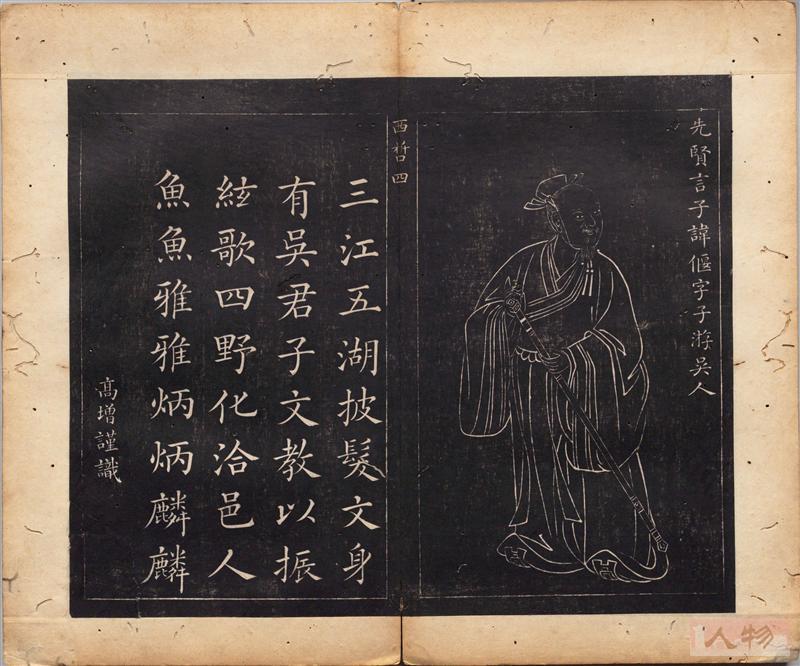 先賢言子諱偃字子游吳人
西哲四
三江五湖披髮文身
有吳君子文教以振
絃歌四野化洽邑人
魚魚雅雅炳炳麟麟
高增謹識
人物